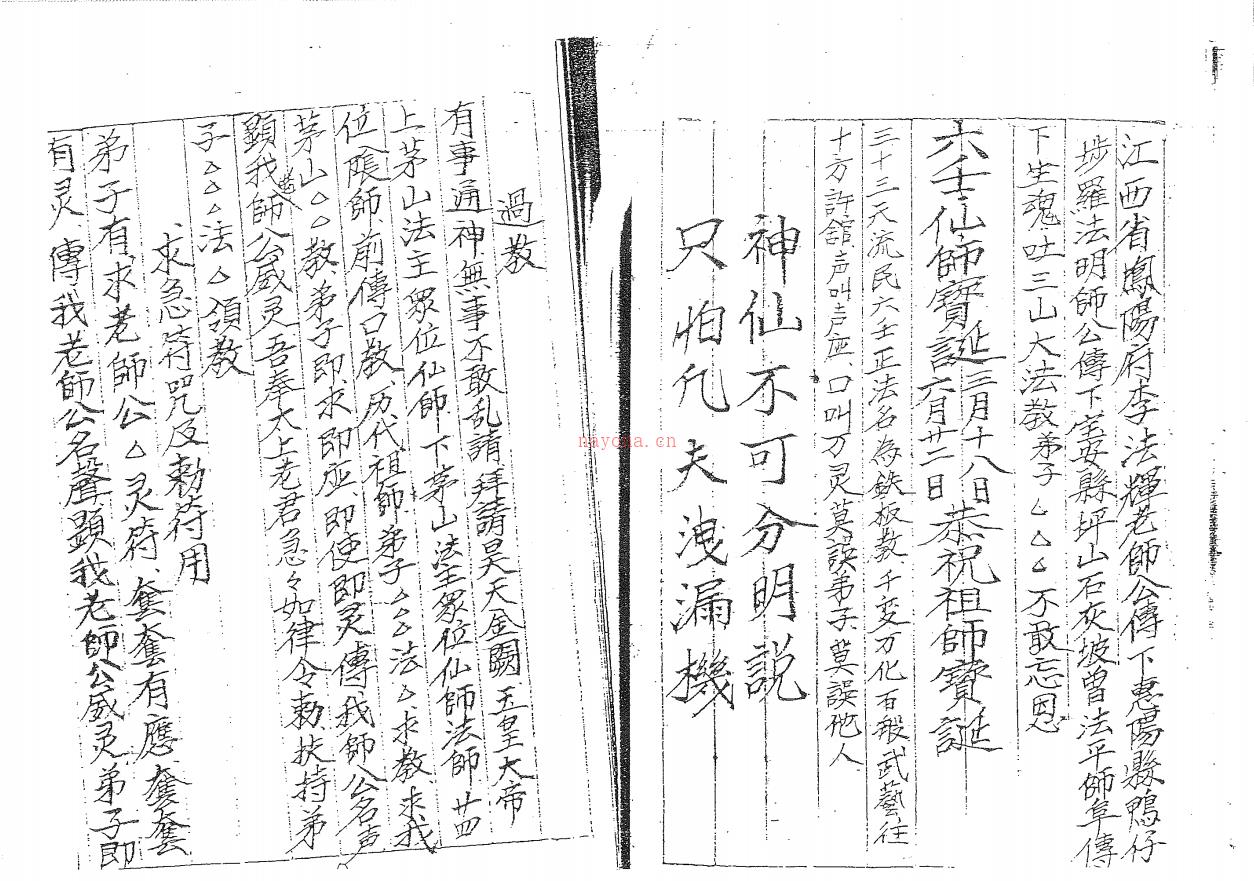 江西省鳳陽府李法輝老師公傳下惠陽縣鴨仔
埗羅法明師公傳下宝安縣坪山石灰坡曾法平師阜傳
下生魂吐三山大法教弟子△△△不敢忘恩
六壬仙師寶誕三月十八日六月廿二日恭祝祖師寶誕
三十三天流民六壬正法名為鉄板教千变万化百般武藝往
十方許舘声叫声应口叫万灵莫誤弟子莫誤他人
神仙不可分明説
只怕凢夫洩漏機
過教
有事通神無事不敢乱請拜請昊天金闕玉皇大帝
上茅山法主眾位仙師下茅山法主眾位仙師法師廿四
位隂師前傳口教历代祖師弟子△△△法△求教求我
茅山△△教弟子即求即应即使即灵傳我師公名声
顕我師公威灵吾奉太上老君急々如律令勅扶持弟
子△△△法△領教
求急符咒及勅符用
弟子有求老師公△灵符奮奮有應奮奮
有灵傳我老師公名聲顕我老師公威灵弟子即
nayona.cn